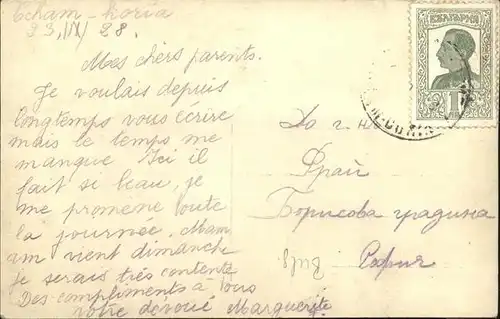 Tcham-koria
23, IV/ 28.
Mes chers parents.
Je voulais depuis
longtemps vous écrire
mais le temps me
manque Ici il
fait si beau, je
me promène toute
la journée. Mam
vient dimanche
je serais très contente
Des compliments à vous
votre dévoué Marguerite
БЪЛГАРИЯ
1
До г-н
Фрай
Борисова градина
София
Bulg